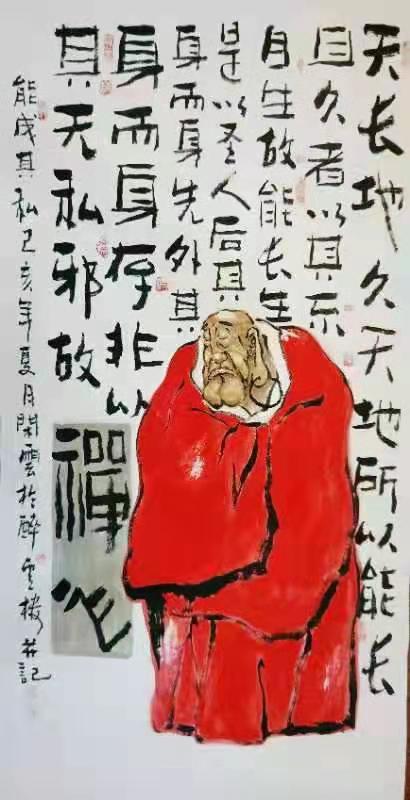 天长地久天地所以能长
且久者以其不
自生故能长生
是以圣人后其
身而身先外其
身而身存非以
其无私邪故
能成其私己亥年夏月閑雲於醉云楼并記
禪心